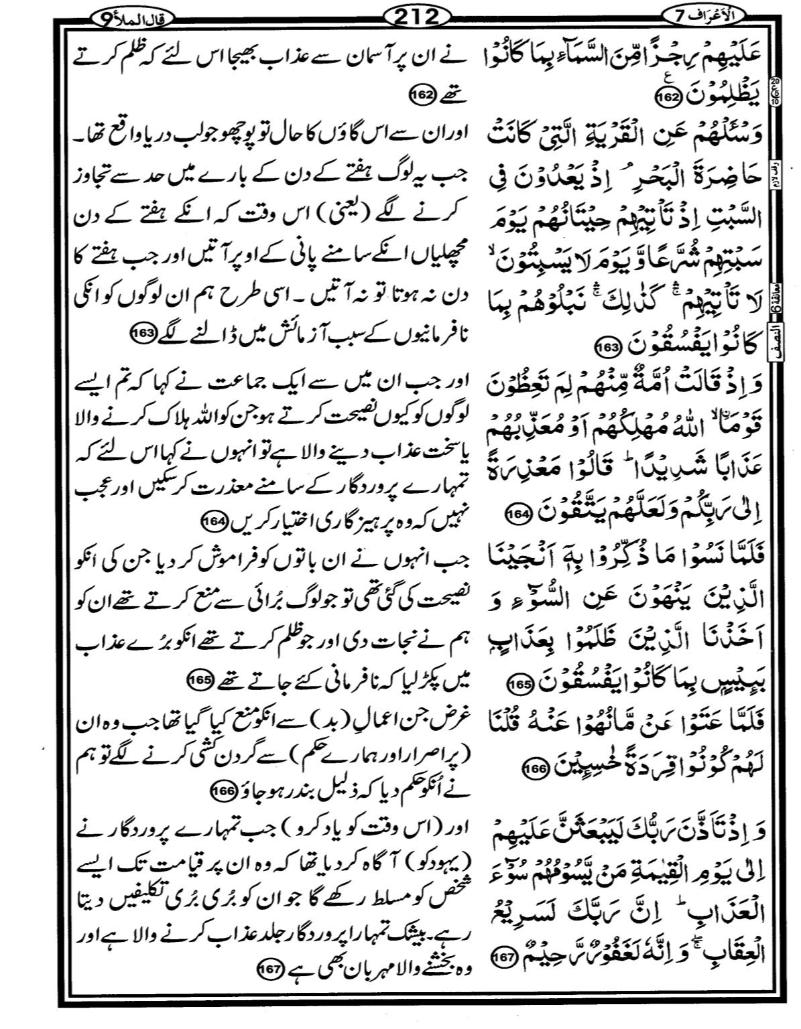 الاعراف 7
212
قال الملأ 9
عَلَيْهِمْ رِجْزًا مِّنَ السَّمَآءِ بِمَا كَانُوْا
يَظْلِمُوْنَ 162
وَسْـَٔلْهُمْ عَنِ الْقَرْيَةِ الَّتِيْ كَانَتْ
حَاضِرَةَ الْبَحْرِ ۘ اِذْ يَعْدُوْنَ فِي
السَّبْتِ اِذْ تَاْتِيْهِمْ حِيْتَانُهُمْ يَوْمَ
سَبْتِهِمْ شُرَّعًا وَّ يَوْمَ لَا يَسْبِتُوْنَ ۙ
لَا تَاْتِيْهِمْ ۛ كَذٰلِكَ ۛ نَبْلُوْهُمْ بِمَا
كَانُوْا يَفْسُقُوْنَ 163
وَ اِذْ قَالَتْ اُمَّةٌ مِّنْهُمْ لِمَ تَعِظُوْنَ
قَوْمَا ۙ اللّٰهُ مُهْلِكُهُمْ اَوْ مُعَذِّبُهُمْ
عَذَابًا شَدِيْدًا ؕ قَالُوْا مَعْذِرَةً
اِلٰى رَبِّكُمْ وَ لَعَلَّهُمْ يَتَّقُوْنَ 164
فَلَمَّا نَسُوْا مَا ذُكِّرُوْا بِهٖٓ اَنْجَيْنَا
الَّذِيْنَ يَنْهَوْنَ عَنِ السُّوْٓءِ وَ
اَخَذْنَا الَّذِيْنَ ظَلَمُوْا بِعَذَابٍۭ
بَـِٔيْسٍۭ بِمَا كَانُوْا يَفْسُقُوْنَ 165
فَلَمَّا عَتَوْا عَنْ مَّا نُهُوْا عَنْهُ قُلْنَا
لَهُمْ كُوْنُوْا قِرَدَةً خٰسِـِٕيْنَ 166
وَ اِذْ تَاَذَّنَ رَبُّكَ لَيَبْعَثَنَّ عَلَيْهِمْ
اِلٰى يَوْمِ الْقِيٰمَةِ مَنْ يَّسُوْمُهُمْ سُوْٓءَ
الْعَذَابِ ؕ اِنَّ رَبَّكَ لَسَرِيْعُ
الْعِقَابِ ۚۖ وَ اِنَّهٗ لَغَفُوْرٌ رَّحِيْمٌ 167
نے ان پر آسمان سے عذاب بھیجا اس لئے کہ ظلم کرتے
تھے 162
اور ان سے اس گاؤں کا حال تو پوچھو جو لب دریا واقع تھا۔
جب یہ لوگ ہفتے کے دن کے بارے میں حد سے تجاوز
کرنے لگے (یعنی) اس وقت کہ انکے ہفتے کے دن
مچھلیاں انکے سامنے پانی کے اوپر آتیں اور جب ہفتے کا
دن نہ ہوتا تو نہ آتیں ۔ اسی طرح ہم ان لوگوں کو انکی
نافرمانیوں کے سبب آزمائش میں ڈالنے لگے 163
اور جب ان میں سے ایک جماعت نے کہا کہ تم ایسے
لوگوں کو کیوں نصیحت کرتے ہو جن کو اللہ ہلاک کرنے والا
یا سخت عذاب دینے والا ہے تو انہوں نے کہا اس لئے کہ
تمہارے پروردگار کے سامنے معذرت کرسکیں اور عجب
نہیں کہ وہ پرہیزگاری اختیار کریں 164
جب انہوں نے ان باتوں کو فراموش کر دیا جن کی انکو
نصیحت کی گئی تھی تو جو لوگ بُرائی سے منع کرتے تھے ان کو
ہم نے نجات دی اور جو ظلم کرتے تھے انکو بُرے عذاب
میں پکڑ لیا کہ نافرمانی کئے جاتے تھے 165
غرض جن اعمالِ (بد) سے انکو منع کیا گیا تھا جب وہ ان
(پر اصرار اور ہمارے حکم) سے گردن کشی کرنے لگے تو ہم
نے اُنکو حکم دیا کہ ذلیل بندر ہوجاؤ 166
اور (اس وقت کو یاد کرو) جب تمہارے پروردگار نے
(یہود کو) آگاہ کردیا تھا کہ وہ ان پر قیامت تک ایسے
شخص کو مسلط رکھے گا جو ان کو بُری بُری تکلیفیں دیتا
رہے۔ بیشک تمہارا پروردگار جلد عذاب کرنے والا ہے اور
وہ بخشنے والا مہربان بھی ہے 167
وقف لازم
معانقة 6
النصف